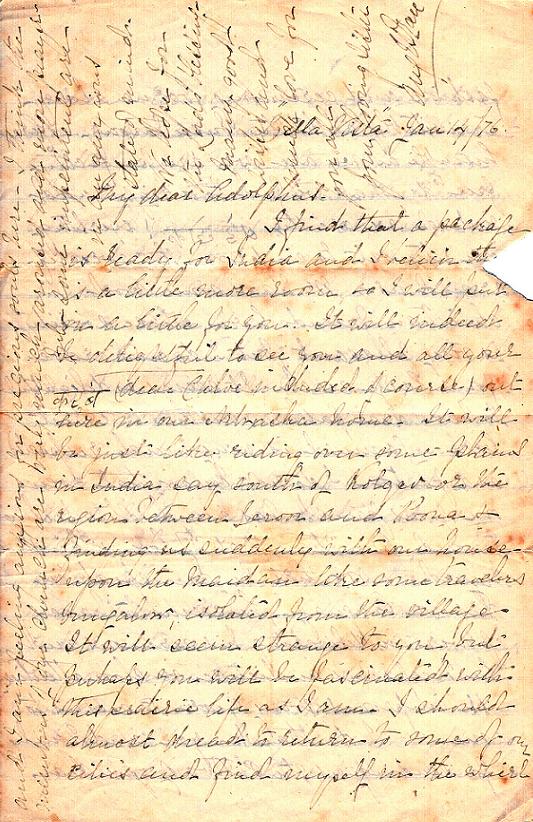 "Villa Vista" Jan 14/76.
My dear Adolphus.
I find that a package
is ready for India and I believe
is a little more room, so I will put
in a little for you. It will indeed
be delightful to see you and all your
(dear Chloe included of course) out
here in our Nebraska home. It will
be just like riding over some plains
in India say south of Kolgev or the
region between Seroor and Poona &
finding us suddenly with our house
upon the Maidan like some travelers
bungalow, isolated from the village.
It will seem strange to you but
perhaps you will be fascinated with
this prairie life as I am. I should
almost dread to return to some of our
cities and find myself in the whirl
and I am feeling anxious for precious
members of our church are
some impenitent are
in an anxious
state of mind.
love for
many good
wishes and
much love for
you all